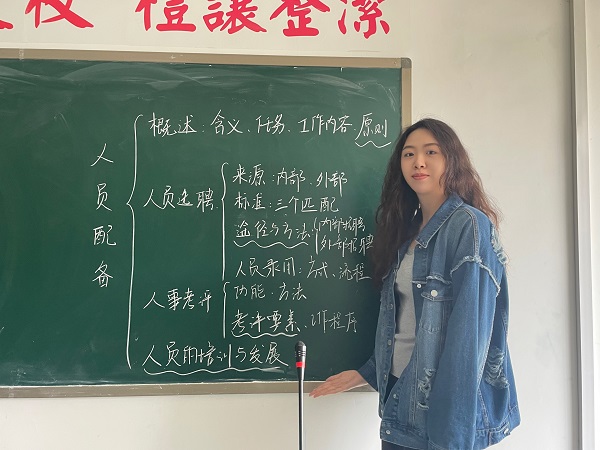 校 禮讓整潔
人员配备
概述：含义、任务、工作内容、原则
人员选聘
来源：内部、外部
标准：三个匹配
途径与方法
内部招聘
外部招聘
人员录用：方式、流程
人事考评
功能、方法
考评要素、工作程序
人员的培训与发展